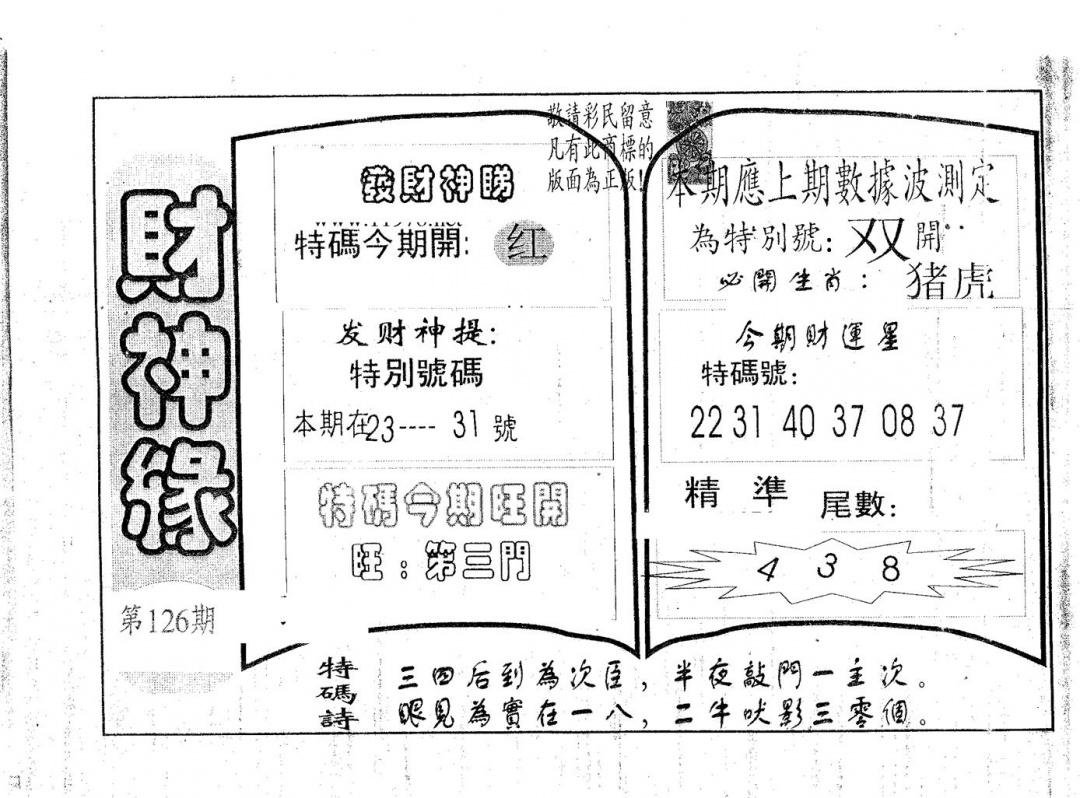 財神緣
第126期
敬請彩民留意
凡有此商標的
版面為正版!
發財神睇
特碼今期開: 红
发财神提:
特別號碼
本期在23----31號
特碼今期旺開
旺:第三門
本期應上期數據波測定
為特別號:双開
必開生肖: 猪虎
今期財運星
特碼號:
22 31 40 37 08 37
精準 尾數:
4 3 8
特碼詩
三四后到為次臣,半夜敲門一主次。
眼見為實在一八,二牛吠影三零個。